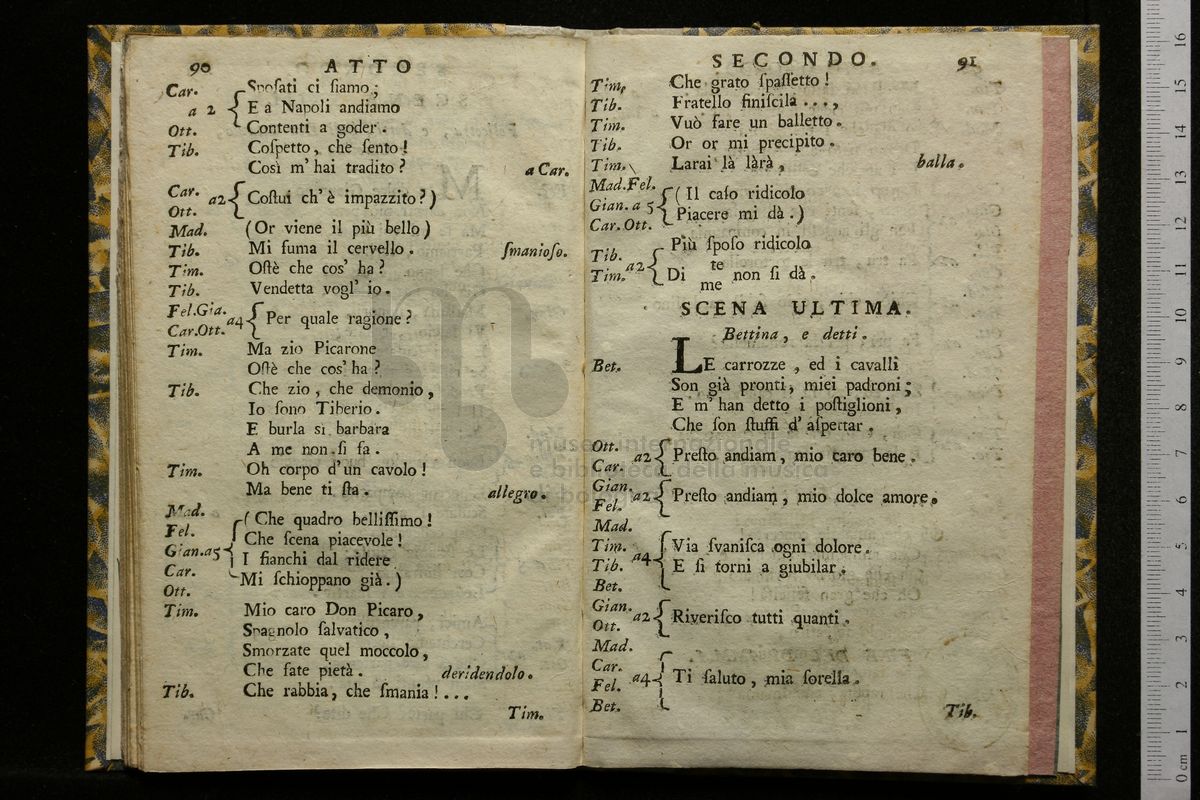 90 ATTO
Car. Spoſati ci ſiamo;
a 2 E a Napoli andiamo
Ott. Contenti a goder.
Tib. Coſpetto, che ſento!
Così m' hai tradito? a Car.
Car. a2 Coſtui ch' è impazzito?)
Ott.
Mad. (Or viene il più bello)
Tib. Mi fuma il cervello. ſmanioſo.
Tim. Oſtè che cos' ha?
Tib. Vendetta vogl' io.
Fel.Gia. a4 Per quale ragione?
Car.Ott.
Tim. Ma zio Picarone
Oſtè che cos' ha?
Tib. Che zio, che demonio,
Io ſono Tiberio.
E burla sì barbara
A me non ſi fa.
Tim. Oh corpo d' un cavolo!
Ma bene ti ſta. allegro.
Mad. (Che quadro belliſſimo!
Fel. Che ſcena piacevole!
Gian.a5 I fianchi dal ridere
Car. Mi ſchioppano già.)
Ott.
Tim. Mio caro Don Picaro,
Spagnolo ſalvatico,
Smorzate quel moccolo,
Che fate pietà. deridendolo.
Tib. Che rabbia, che ſmania!...
Tim.
SECONDO. 91
Tim. Che grato ſpaſſetto!
Tib. Fratello finiſcila ...,
Tim. Vuò fare un balletto.
Tib. Or or mi precipito.
Tim. Larai là làrà, balla.
Mad.Fel. (Il caſo ridicolo
Gian. a 5 Piacere mi dà.)
Car.Ott.
Tib. a2 Più ſpoſo ridicolo
Tim. Di te non ſi dà.
me
SCENA ULTIMA.
Bettina, e detti.
Bet. LE carrozze, ed i cavalli
Son già pronti, miei padroni;
E m' han detto i poſtiglioni,
Che ſon ſtuffi d' aſpettar.
Ott. a2 Preſto andiam, mio caro bene.
Car.
Gian. a2 Preſto andiam, mio dolce amore.
Fel.
Mad.
Tim. a4 Via ſvaniſca ogni dolore.
Tib. E ſi torni a giubilar.
Bet.
Gian. a2 Riveriſco tutti quanti.
Ott.
Mad.
Car. a4 Ti ſaluto, mia ſorella.
Fel.
Bet.
Tib.
museo internazionale
e biblioteca della musica
di bologna
0 cm 1 2 3 4 5 6 7 8 9 10 11 12 13 14 15 16